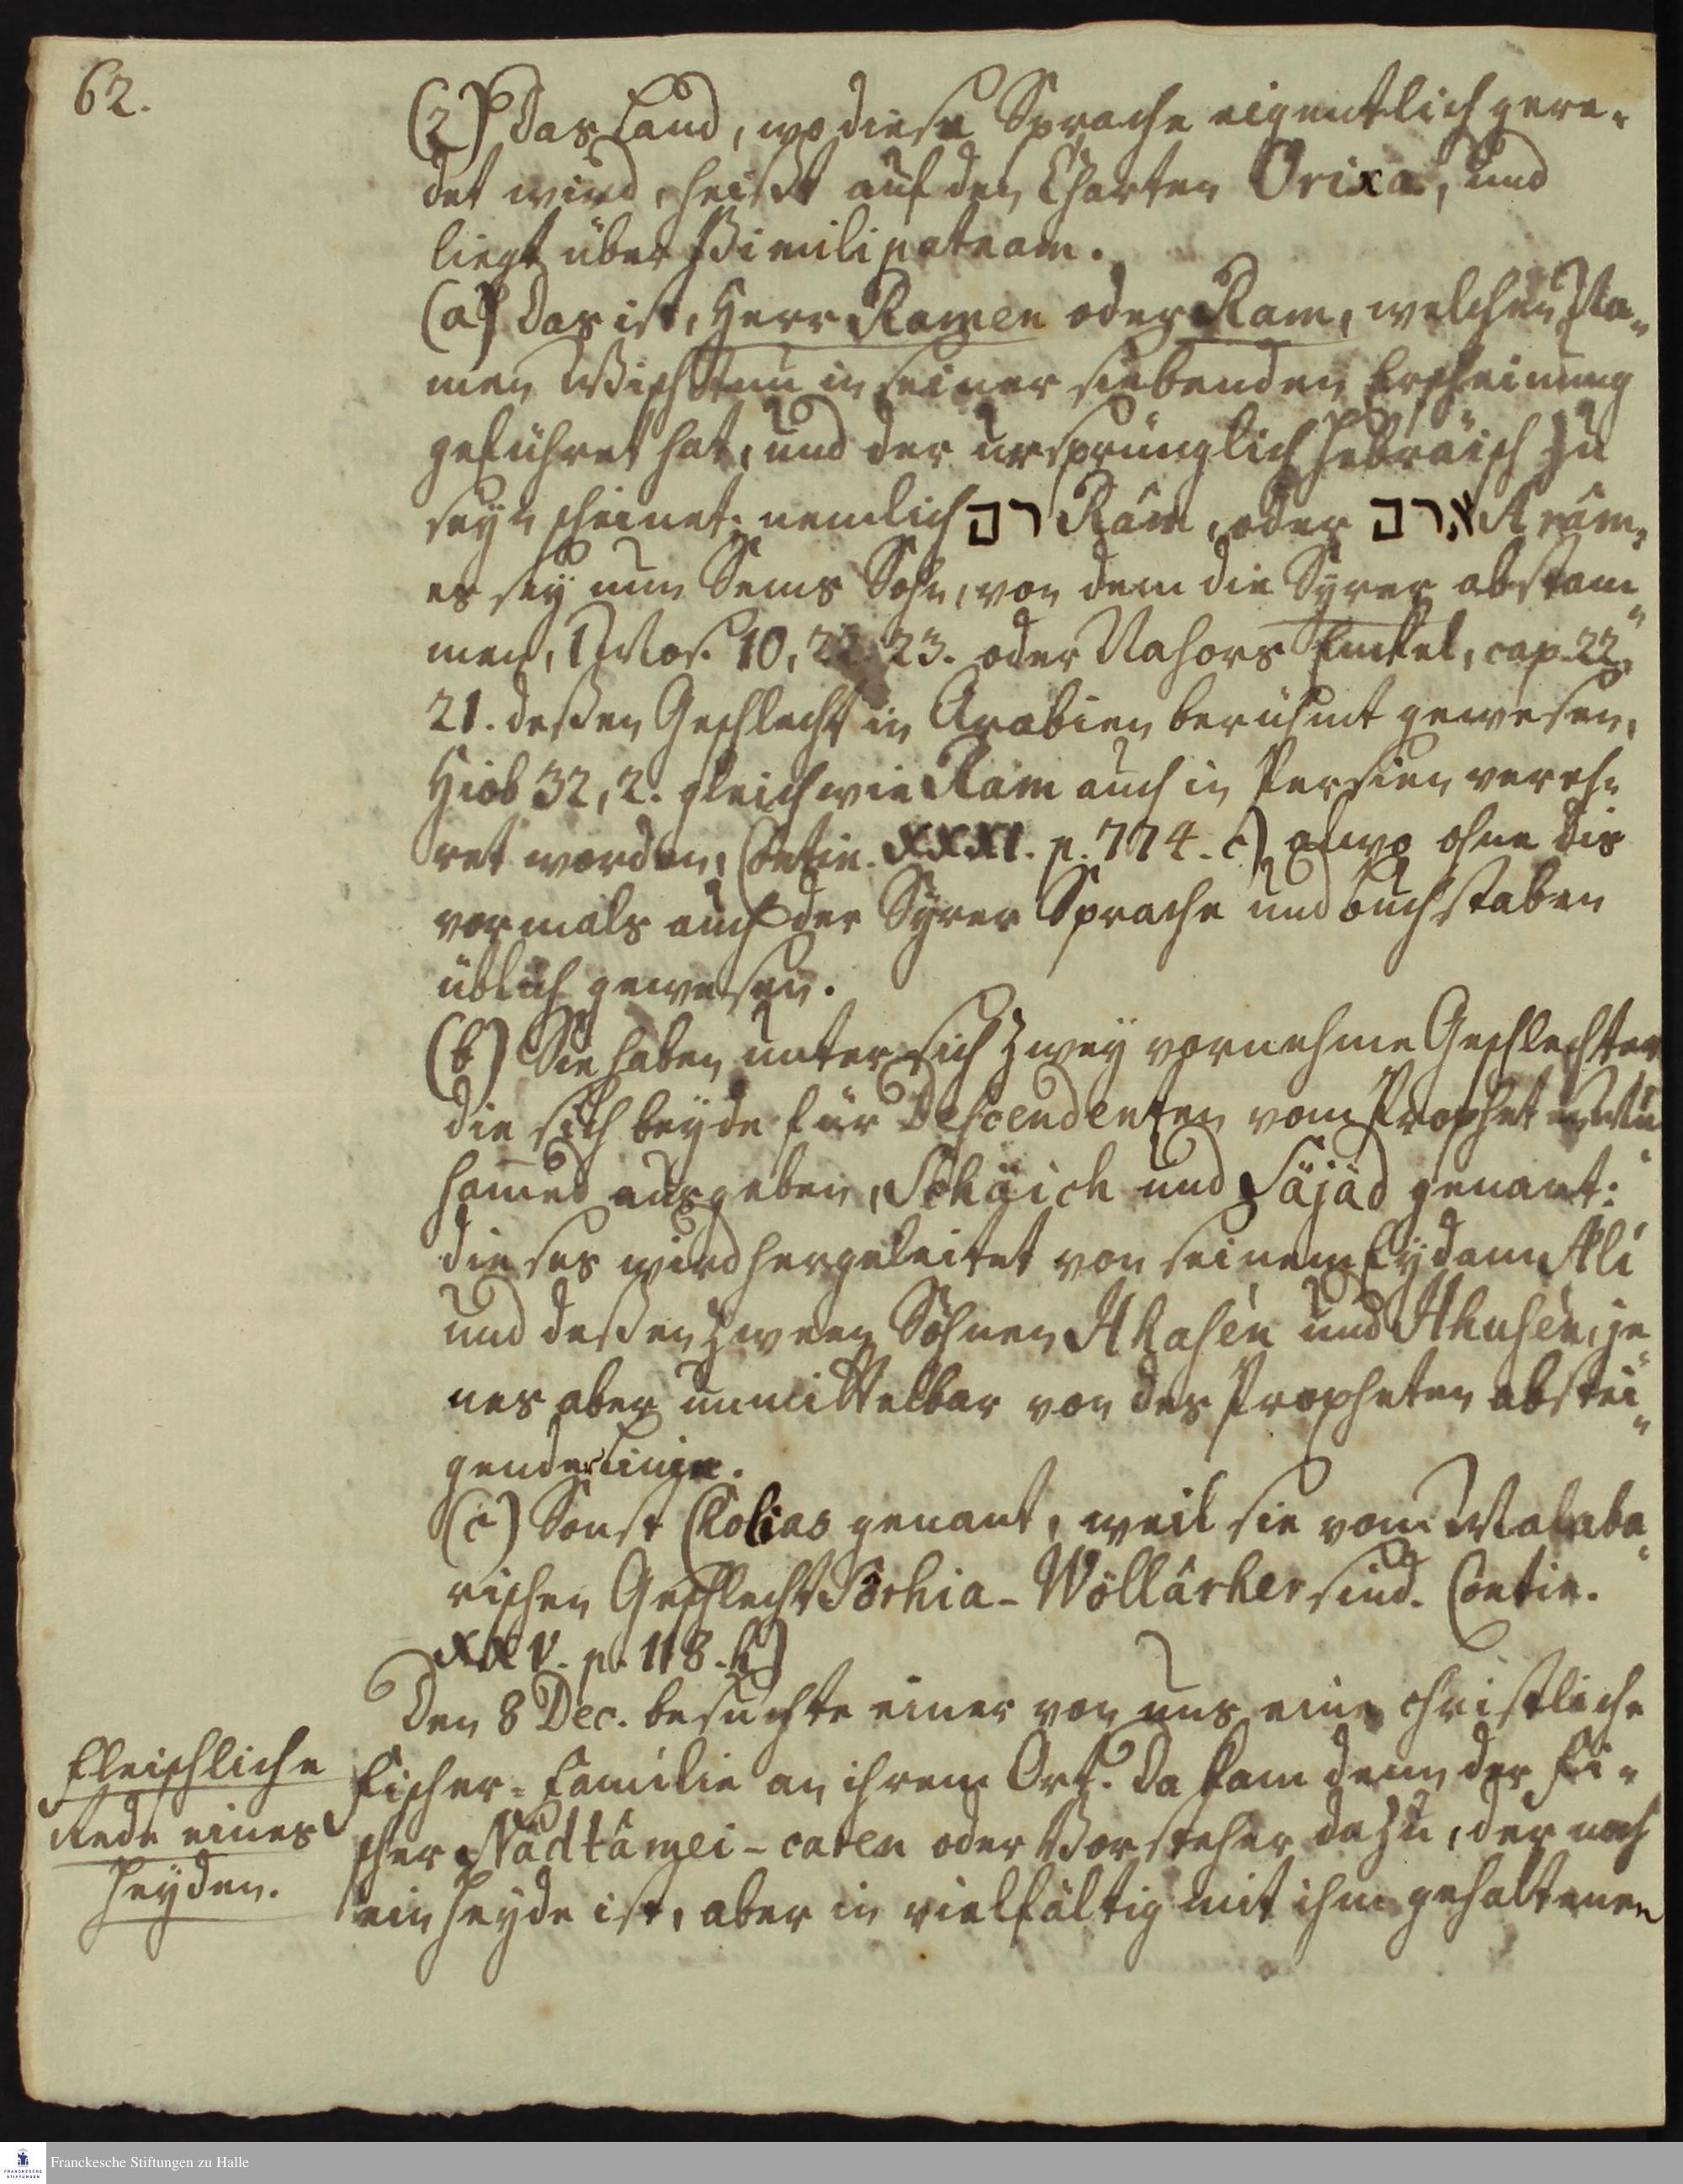 62.
(2) Das Land, wo diese Sprache eigentlich gere-
det wird, heißt auf den Charten Orixa, und
liegt über Bimilipatnam.
(a) Das ist, Herr Ramen oder Ram, welchen Na-
men Wischtnu in seiner siebenden Erscheinung
geführet hat, und der ursprünglich Hebräisch zu
seyn scheinet; nemlich רם Râm, oder ארם Arâm,
es sey nun Sems Sohn, von dem die Syrer abstam-
men, 1 Mos. 10, 22. 23. oder Nahors Enckel, cap. 22,
21. deßen Geschlecht in Arabien berühmt gewesen,
Hiob 32, 2. gleichwie Ram auch in Persien vereh-
ret worden, (Contin. XXXI. p. 774. c) alwo ohne dis
vormals auch der Syrer Sprache und Buchstaben
üblich gewesen.
(b) Sie haben unter sich zwey vornehme Geschlechter
die sich beyde für Descendenten vom Propheten Mu-
hamed ausgeben, Schäich und Säjäd genant:
dieses wird hergeleitet von seinem Eydam Ali
und deßen zween Söhnen Ahasén und Ahusén, je-
nes aber unmittelbar von des Propheten abstei-
gender Linie.
(c) Sonst Cholias genant, weil sie vom Malaba-
rischen Geschlecht Sôrhia-Wöllârher sind. Contin.
XXV. p. 118. h)
Den 8 Dec. besuchte einer von uns eine christliche
Fischer-Familie an ihrem Ort. Da kam denn der Fi-
scher Nâdtâmei-caren oder Vorsteher dazu, der noch
ein Heyde ist, aber in vielfältig mit ihm gehaltenen
Fleischliche
Rede eines
Heyden.
Franckesche Stiftungen zu Halle
FRANCKESCHE
STIFTUNGEN